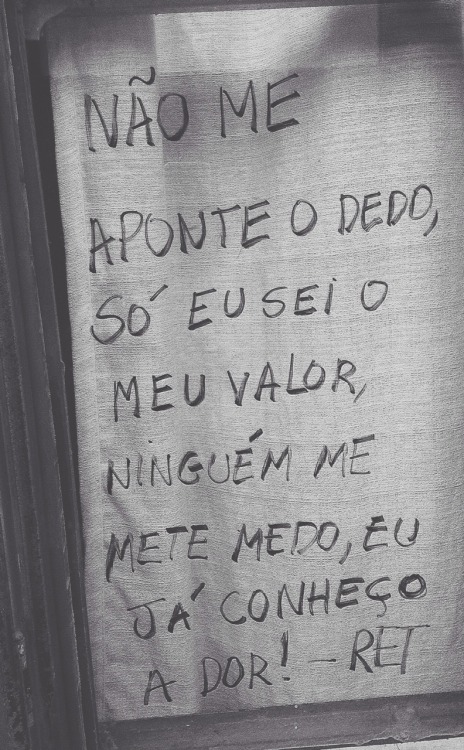 NÃO ME
APONTE O DEDO,
SÓ EU SEI O
MEU VALOR,
NINGUÉM ME
METE MEDO, EU
JÁ CONHEÇO
A DOR! - RET